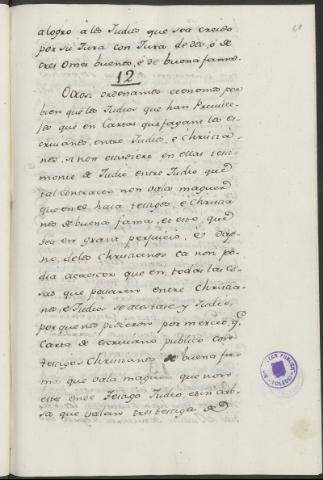 alogro à los Judios que sea creido
por su Jura con Jura de dos, ó de
tres omes buenos, é de buena fama.
12
Otrosi ordenamos è tenemos por
bien que los Judios que han Previle-
que en Cartas que fagan los es-
crivanos, entre Judios, e Christia-
nos, si non estuviere en ellas testi-
monio de Judio entre Judio que
tal contracto non vala maguer
que en el haia testigos, e Christia-
nos de buena fama, ec esto que
sea en grant perjuicio, e dap-
no, de los Christianos ca non po-
dia acaescer que en todas las co-
sas que pasaren entre Christia-
nos, e Judios se acertase y Judio,
por que nos pidieron por merced, q.
Carta de escrivano publico con
testigos Christianos de buena fa-
ma que vala maguer que non
este ende Testigo Judio, e sin cab-
sa que valan tres testigos de